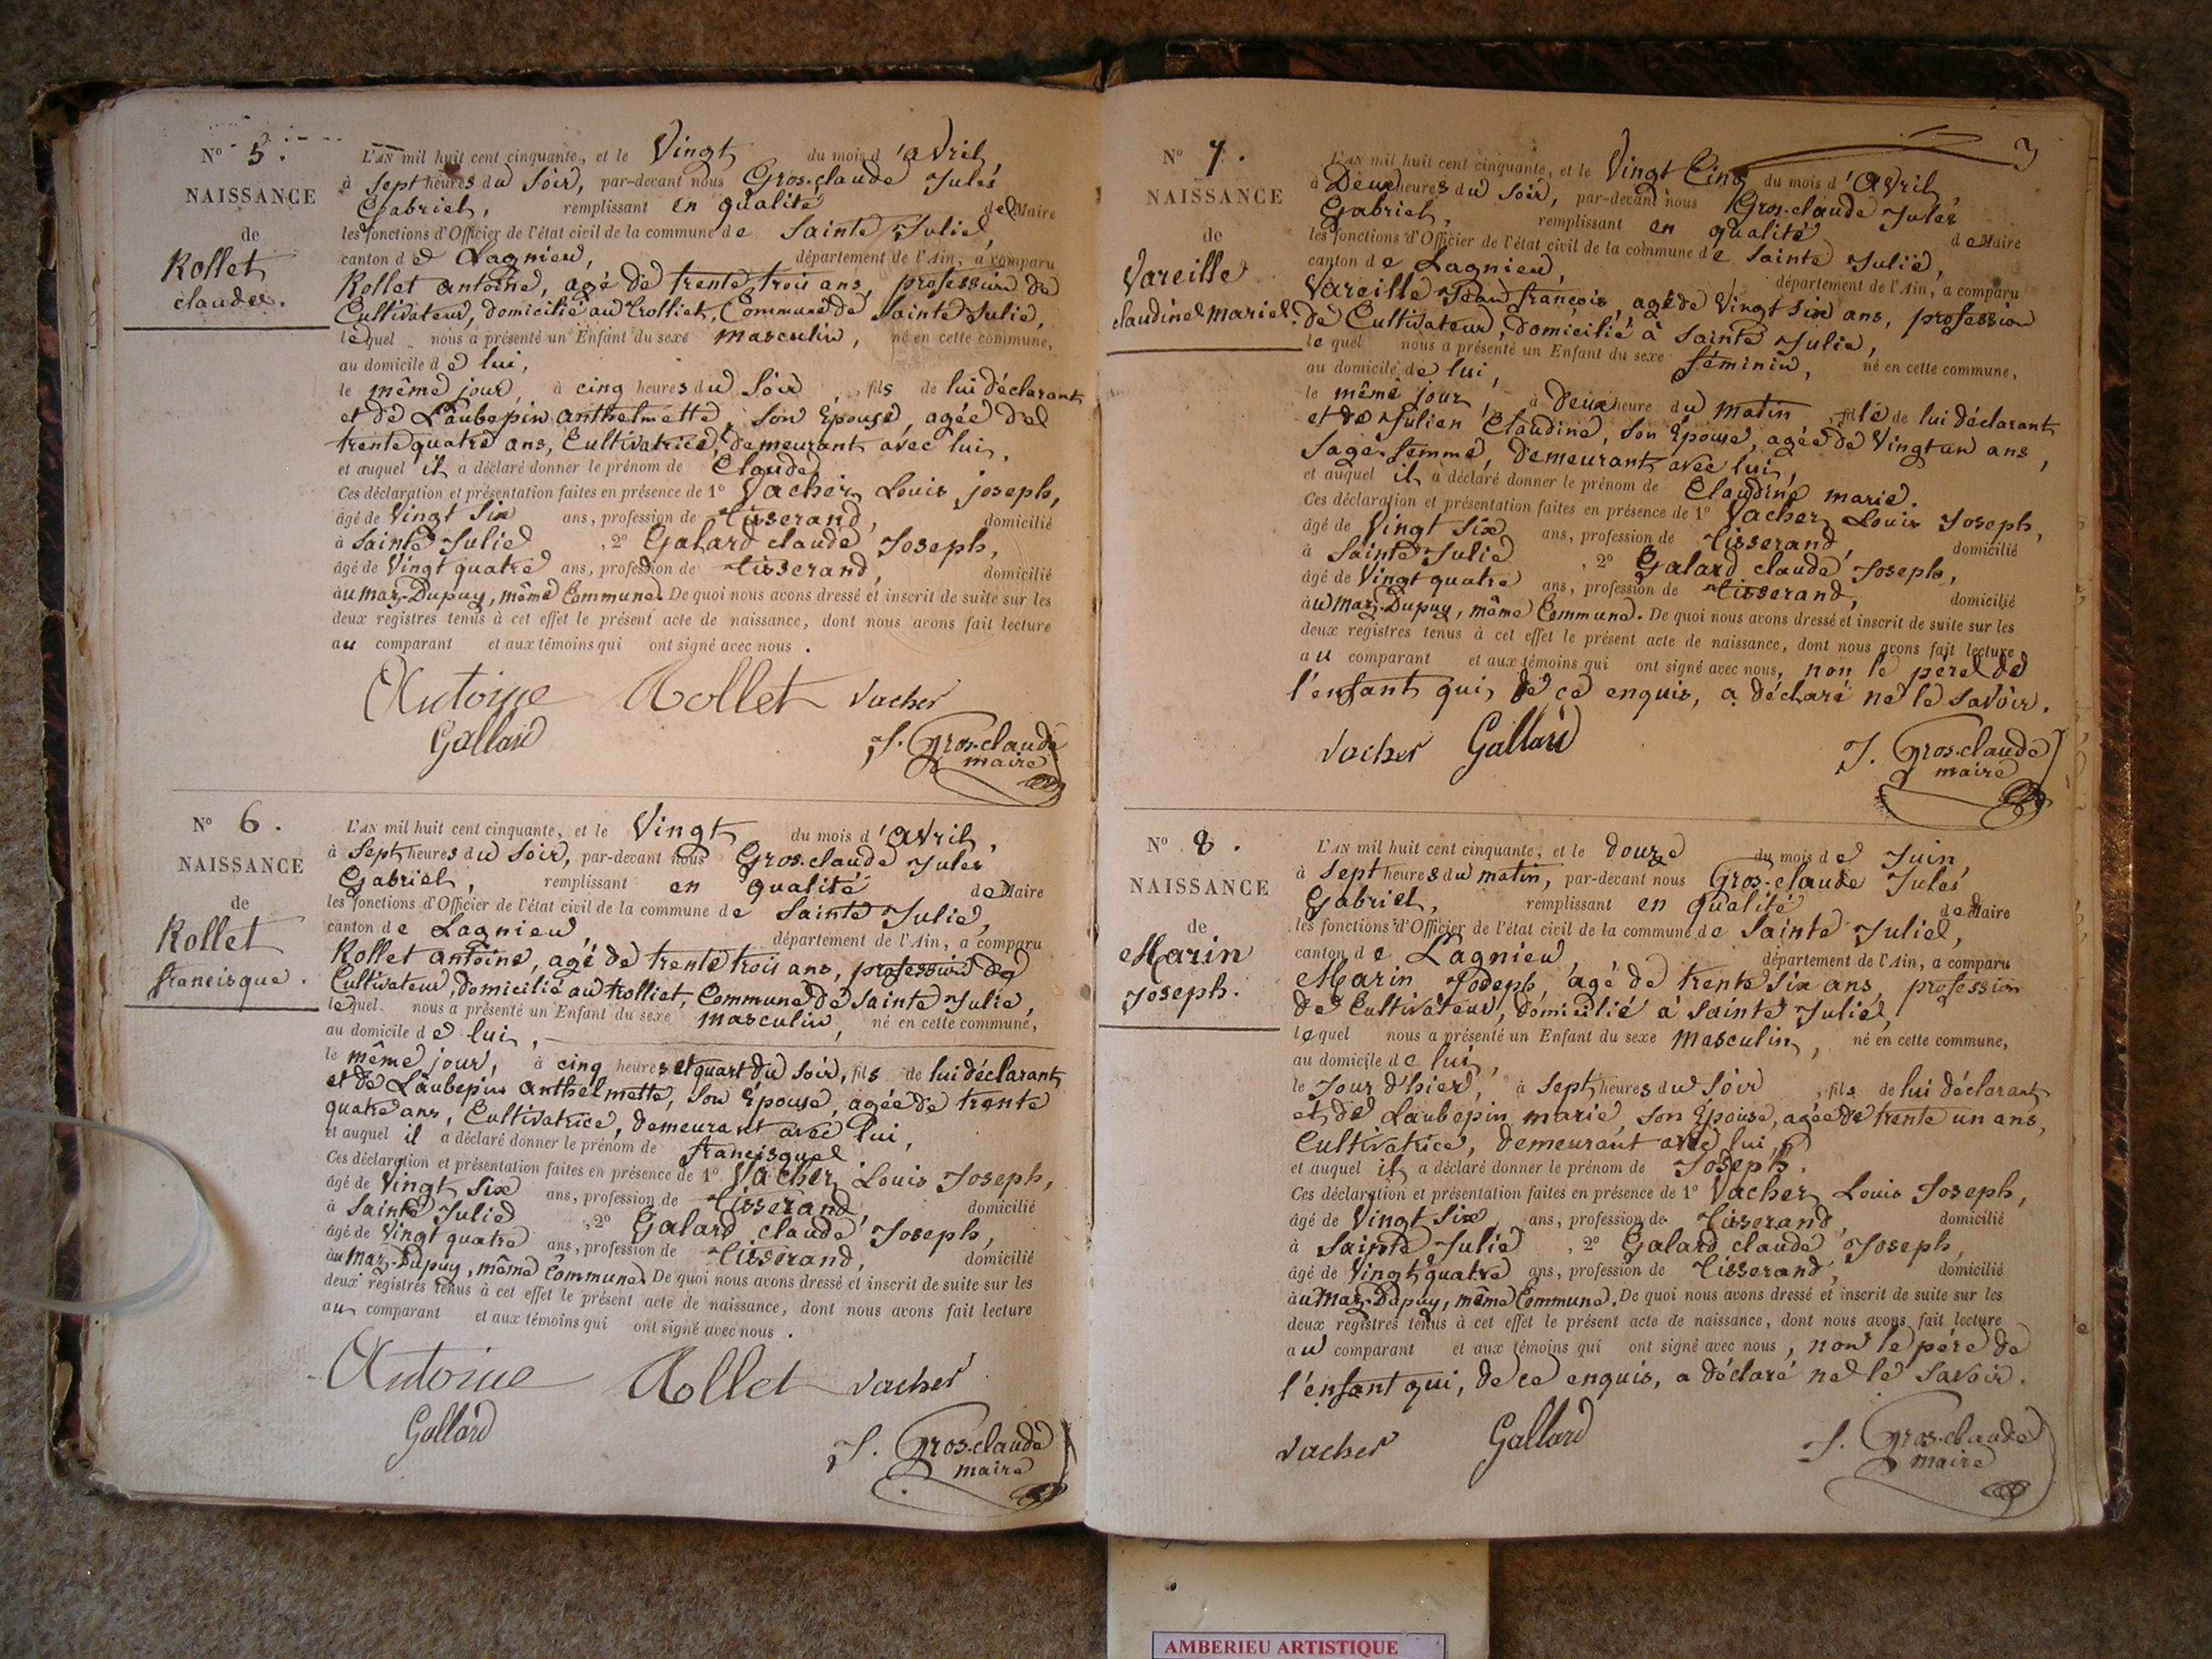 N° 5.
NAISSANCE
de
Rollet
claude.
L'AN mil huit cent cinquante, et le Vingt du mois d'avril,
à sept heures du soir, par-devant nous Gros-claude Jules
Gabriel, remplissant en qualité de Maire
les fonctions d'Officier de l'état civil de la commune de Sainte Julie,
canton de Lagnieu, département de l'Ain, a comparu
Rollet antoine, agé de trente trois ans, profession de
Cultivateur, domicilié au trolliet, Commune de Sainte Julie,
lequel nous a présenté un Enfant du sexe masculin, né en cette commune,
au domicile de lui,
le même jour, à cinq heures du soir, fils de lui déclarant
et de Laubepin anthelmette, son Epouse, agée de
trente quatre ans, Cultivatrice, demeurant avec lui,
et auquel il a déclaré donner le prénom de Claude
Ces déclaration et présentation faites en présence de 1° Vacher Louis joseph,
âgé de Vingt Six ans, profession de tisserand, domicilié
à Sainte Julie, 2° Galard claude Joseph,
âgé de Vingt quatre ans, profession de tisserand, domicilié
au Maz-Dupuy, même Commune. De quoi nous avons dressé et inscrit de suite sur les
deux registres tenus à cet effet le présent acte de naissance, dont nous avons fait lecture
au comparant et aux témoins qui ont signé avec nous.
Antoine Rollet Vacher
Gallard
J. Gros-claude
maire
N° 6.
NAISSANCE
de
Rollet
francisque.
L'AN mil huit cent cinquante, et le Vingt du mois d'avril,
à Sept heures du soir, par-devant nous Gros-claude Jules
Gabriel, remplissant en qualité de Maire
les fonctions d'Officier de l'état civil de la commune de Sainte Julie,
canton de Lagnieu, département de l'Ain, a comparu
Rollet antoine, agé de trente trois ans, profession de
Cultivateur, domicilié au trolliet, Commune de Sainte Julie,
lequel nous a présenté un Enfant du sexe masculin, né en cette commune,
au domicile de lui,
le même jour, à cinq heures et quart du soir, fils de lui déclarant
et de Laubepin anthelmette, son Epouse, agée de trente
quatre ans, Cultivatrice, demeurant avec lui,
et auquel il a déclaré donner le prénom de francisque
Ces déclaration et présentation faites en présence de 1° Vacher Louis Joseph,
âgé de Vingt Six ans, profession de tisserand, domicilié
à Sainte Julie, 2° Galard claude Joseph,
âgé de Vingt quatre ans, profession de tisserand, domicilié
au Maz-Dupuy, même Commune. De quoi nous avons dressé et inscrit de suite sur les
deux registres tenus à cet effet le présent acte de naissance, dont nous avons fait lecture
au comparant et aux témoins qui ont signé avec nous.
Antoine Rollet Vacher
Gallard
J. Gros-claude
maire
3
N° 7.
NAISSANCE
de
Vareille
claudine marie.
L'AN mil huit cent cinquante, et le Vingt Cinq du mois d'avril,
à Deux heures du soir, par-devant nous Gros-claude Jules
Gabriel, remplissant en qualité de Maire
les fonctions d'Officier de l'état civil de la commune de Sainte Julie,
canton de Lagnieu, département de l'Ain, a comparu
Vareille Jean françois, agé de Vingt Six ans, profession
de Cultivateur, domicilié à Sainte Julie,
lequel nous a présenté un Enfant du sexe féminin, né en cette commune,
au domicile de lui,
le même jour, à deux heure du matin, fille de lui déclarant
et de Julien Claudine, son Epouse, agée de Vingt un ans,
Sage-femme, demeurant avec lui,
et auquel il a déclaré donner le prénom de Claudine marie.
Ces déclaration et présentation faites en présence de 1° Vacher Louis Joseph,
âgé de Vingt Six ans, profession de tisserand, domicilié
à Sainte Julie, 2° Galard claude Joseph,
âgé de Vingt quatre ans, profession de tisserand, domicilié
au Maz-Dupuy, même Commune. De quoi nous avons dressé et inscrit de suite sur les
deux registres tenus à cet effet le présent acte de naissance, dont nous avons fait lecture
au comparant et aux témoins qui ont signé avec nous, non le père de
l'enfant qui, de ce enquis, a déclaré ne le savoir.
Vacher Gallard
J. Gros-claude
maire
N° 8.
NAISSANCE
de
Marin
Joseph.
L'AN mil huit cent cinquante, et le douze du mois de Juin,
à Sept heures du matin, par-devant nous Gros-claude Jules
Gabriel, remplissant en qualité de Maire
les fonctions d'Officier de l'état civil de la commune de Sainte Julie,
canton de Lagnieu, département de l'Ain, a comparu
Marin Joseph, agé de trente Six ans, profession
de Cultivateur, domicilié à Sainte Julie,
lequel nous a présenté un Enfant du sexe masculin, né en cette commune,
au domicile de lui,
le Jour d'hier, à Sept heures du soir, fils de lui déclarant
et de Laubepin marie, son Epouse, agée de trente un ans,
Cultivatrice, demeurant avec lui,
et auquel il a déclaré donner le prénom de Joseph.
Ces déclaration et présentation faites en présence de 1° Vacher Louis Joseph,
âgé de Vingt Six ans, profession de tisserand, domicilié
à Sainte Julie, 2° Galard claude Joseph,
âgé de Vingt quatre ans, profession de tisserand, domicilié
au Maz-Dupuy, même Commune. De quoi nous avons dressé et inscrit de suite sur les
deux registres tenus à cet effet le présent acte de naissance, dont nous avons fait lecture
au comparant et aux témoins qui ont signé avec nous, non le père de
l'enfant qui, de ce enquis, a déclaré ne le savoir.
Vacher Gallard
J. Gros-claude
maire
AMBERIEU ARTISTIQUE